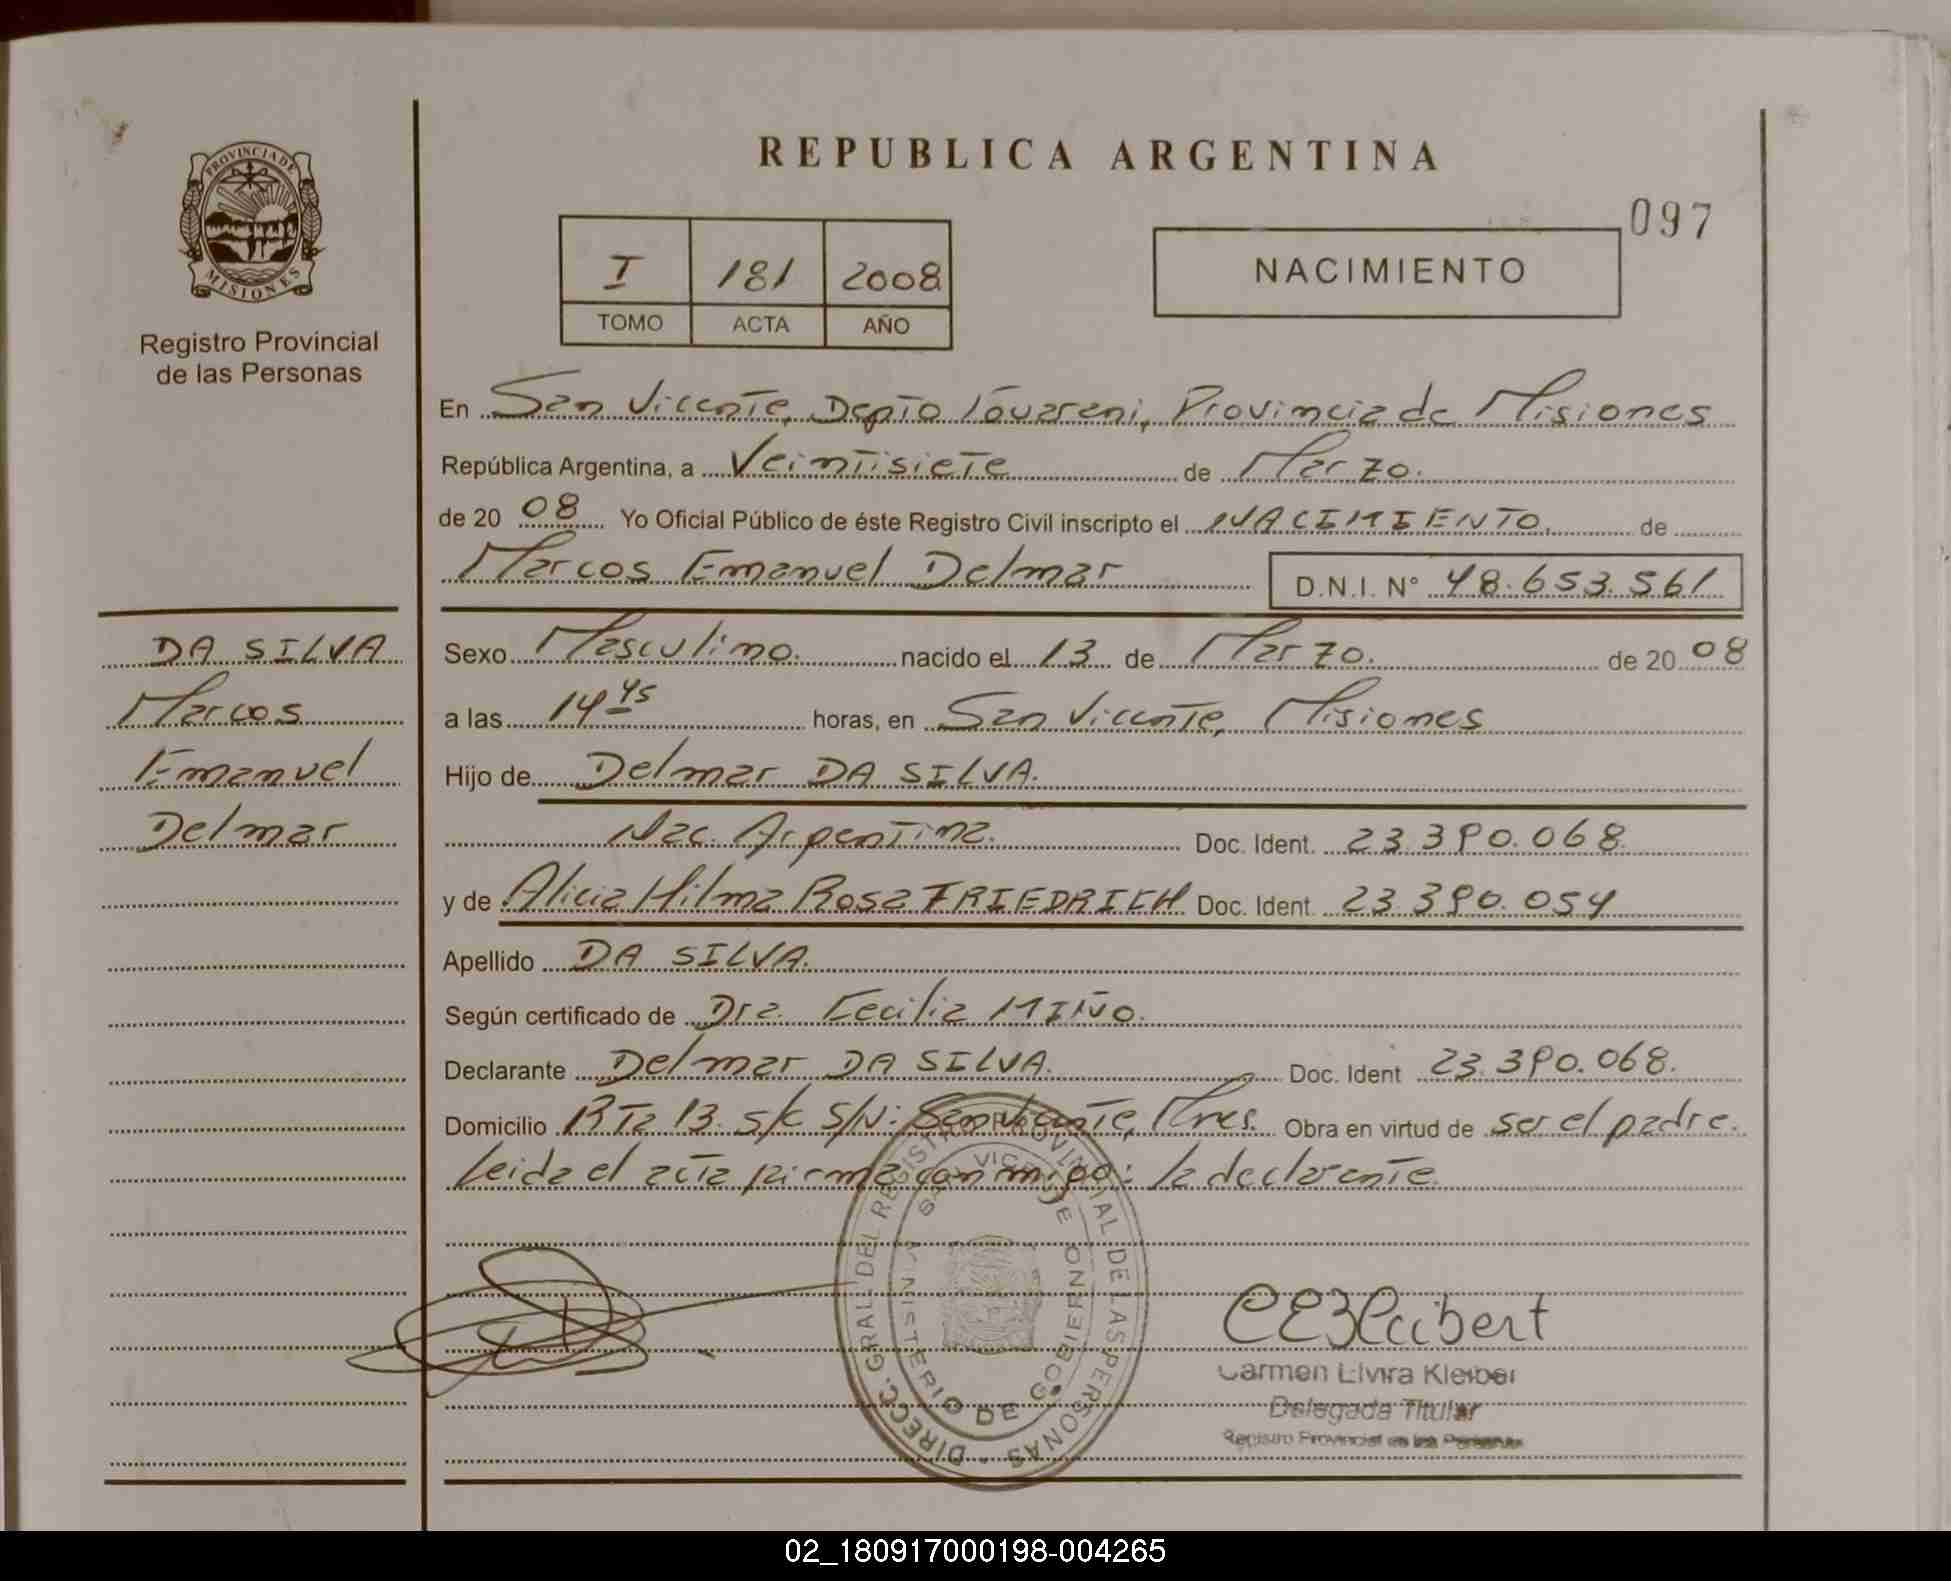 REPUBLICA ARGENTINA
097
PROVINCIA DE
MISIONES
Registro Provincial
de las Personas
I 181 2008
TOMO ACTA AÑO
NACIMIENTO
En San Vicente, Depto Guarani, Provincia de Misiones
República Argentina, a Veintisiete de Marzo.
de 20 08 Yo Oficial Público de éste Registro Civil inscripto el NACIMIENTO, de
Marcos Emanuel Delmar D.N.I. N° 48.653.561
DA SILVA
Marcos
Emanuel
Delmar
Sexo Masculino. nacido el 13 de Marzo. de 20 08
a las 14 45 horas, en San Vicente, Misiones
Hijo de Delmar DA SILVA.
Nac. Argentina. Doc. Ident. 23.390.068.
y de Alicia Hilma Rosa FRIEDRICH Doc. Ident. 23.390.054
Apellido DA SILVA.
Según certificado de Dra. Cecilia MIÑO.
Declarante Delmar DA SILVA. Doc. Ident 23.390.068.
Domicilio RTa 13. s/c S/N: San Vicente, Mnes. Obra en virtud de ser el padre.
Leida el acta firma conmigo: la declarante
DIRECC. GRAL. DEL REGISTRO PROVINCIAL DE LAS PERSONAS
SAN VICENTE
MINISTERIO DE GOBIERNO
Carmen Elvira Kleiber
Delegada Titular
Registro Provincial de las Personas
02_180917000198-004265